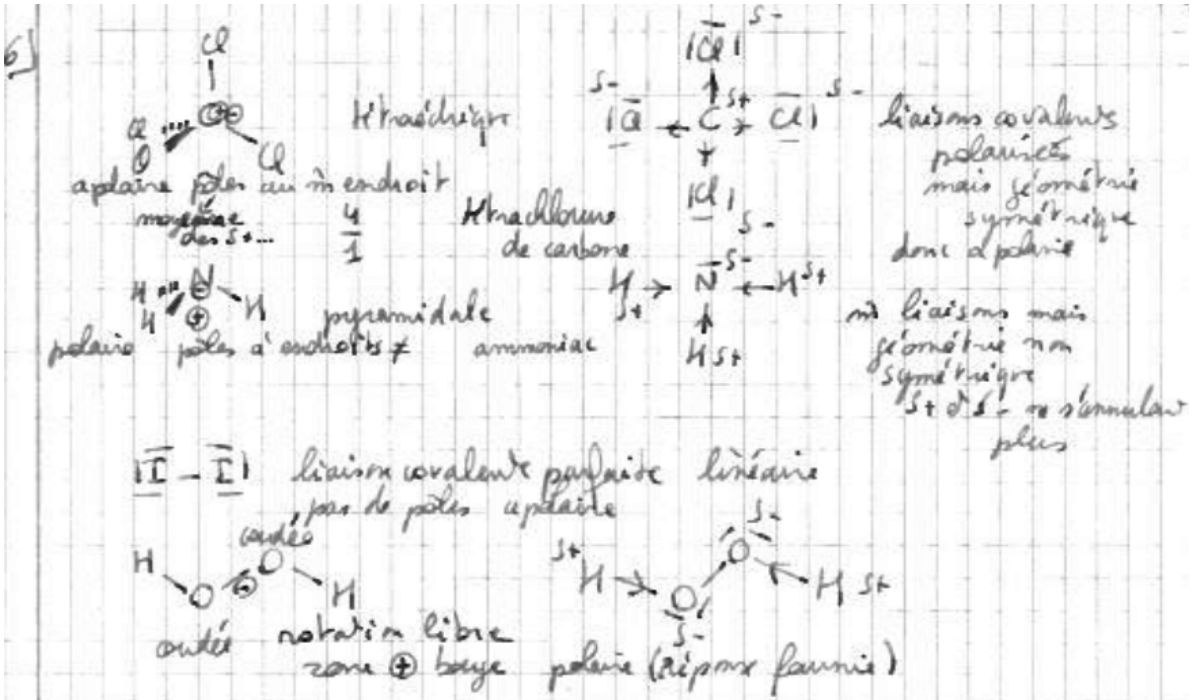 6]
Cl
Cl
Cl
Cl
C ⊕⊖
tétraédrique
apolaire pôles au m̂ endroit
moyenne
des δ+...
4
1
tétrachlorure
de carbone
|Cl| δ-
δ- |Cl ← C δ+ → Cl| δ-
|Cl| δ-
liaisons covalentes
polarisées
mais géométrie
symétrique
donc apolaire
H N H
H ⊖
⊕
pyramidale
polaire pôles à endroits ≠ ammoniac
H → N δ- ← H δ+
δ+
H δ+
m̂ liaisons mais
géométrie non
symétrique
δ+ et δ- ne s'annulent
plus
|I - I| liaison covalente parfaite linéaire
pas de pôles apolaire
H O ⊖ O H
coudée
coudée
rotation libre
zone ⊕ bouge polaire (réponse fournie)
δ+ H → O O ← H δ+
δ-
δ-